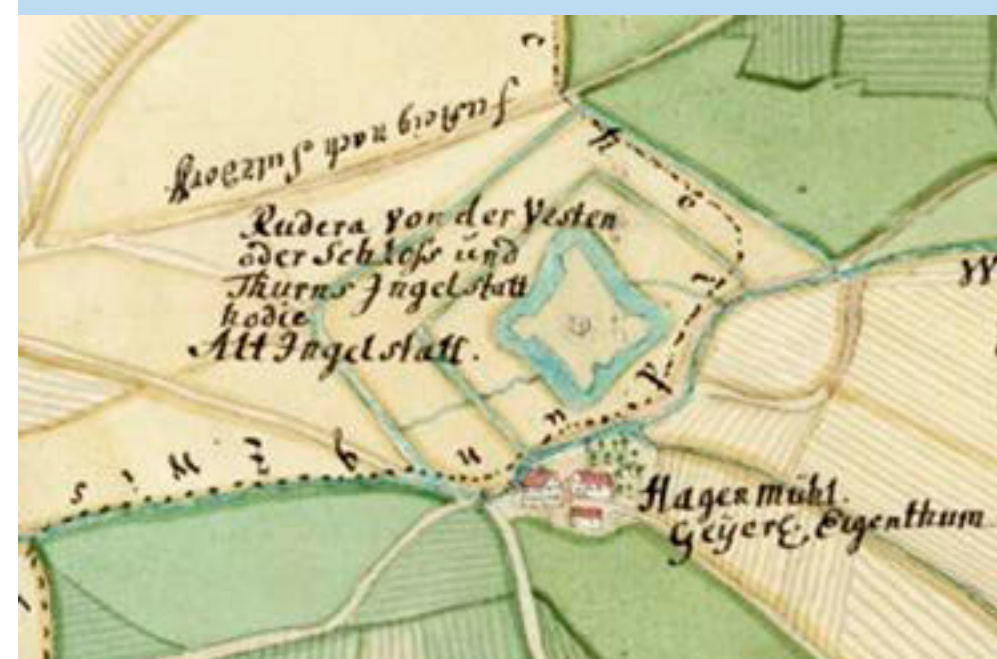 Fusteig nach Sulzdorff
Rudera von der Vesten
oder Schloss und
Thurns Ingelstatt
hodie
Alt Ingelstatt.
Hagenmühl.
Geyers. Eigenthum
W